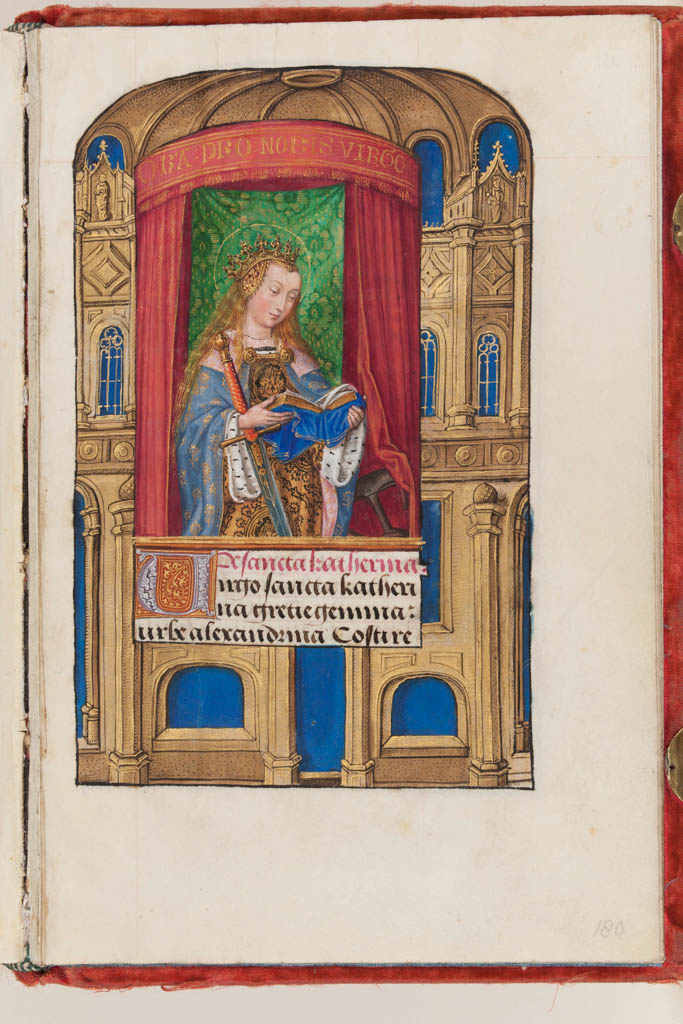 ORA·PRO NOBIS VIRGO
De sancta katherina:
Uirgo sancta katheri
na gretie gemma:
urbe alexandrina Costi re
180